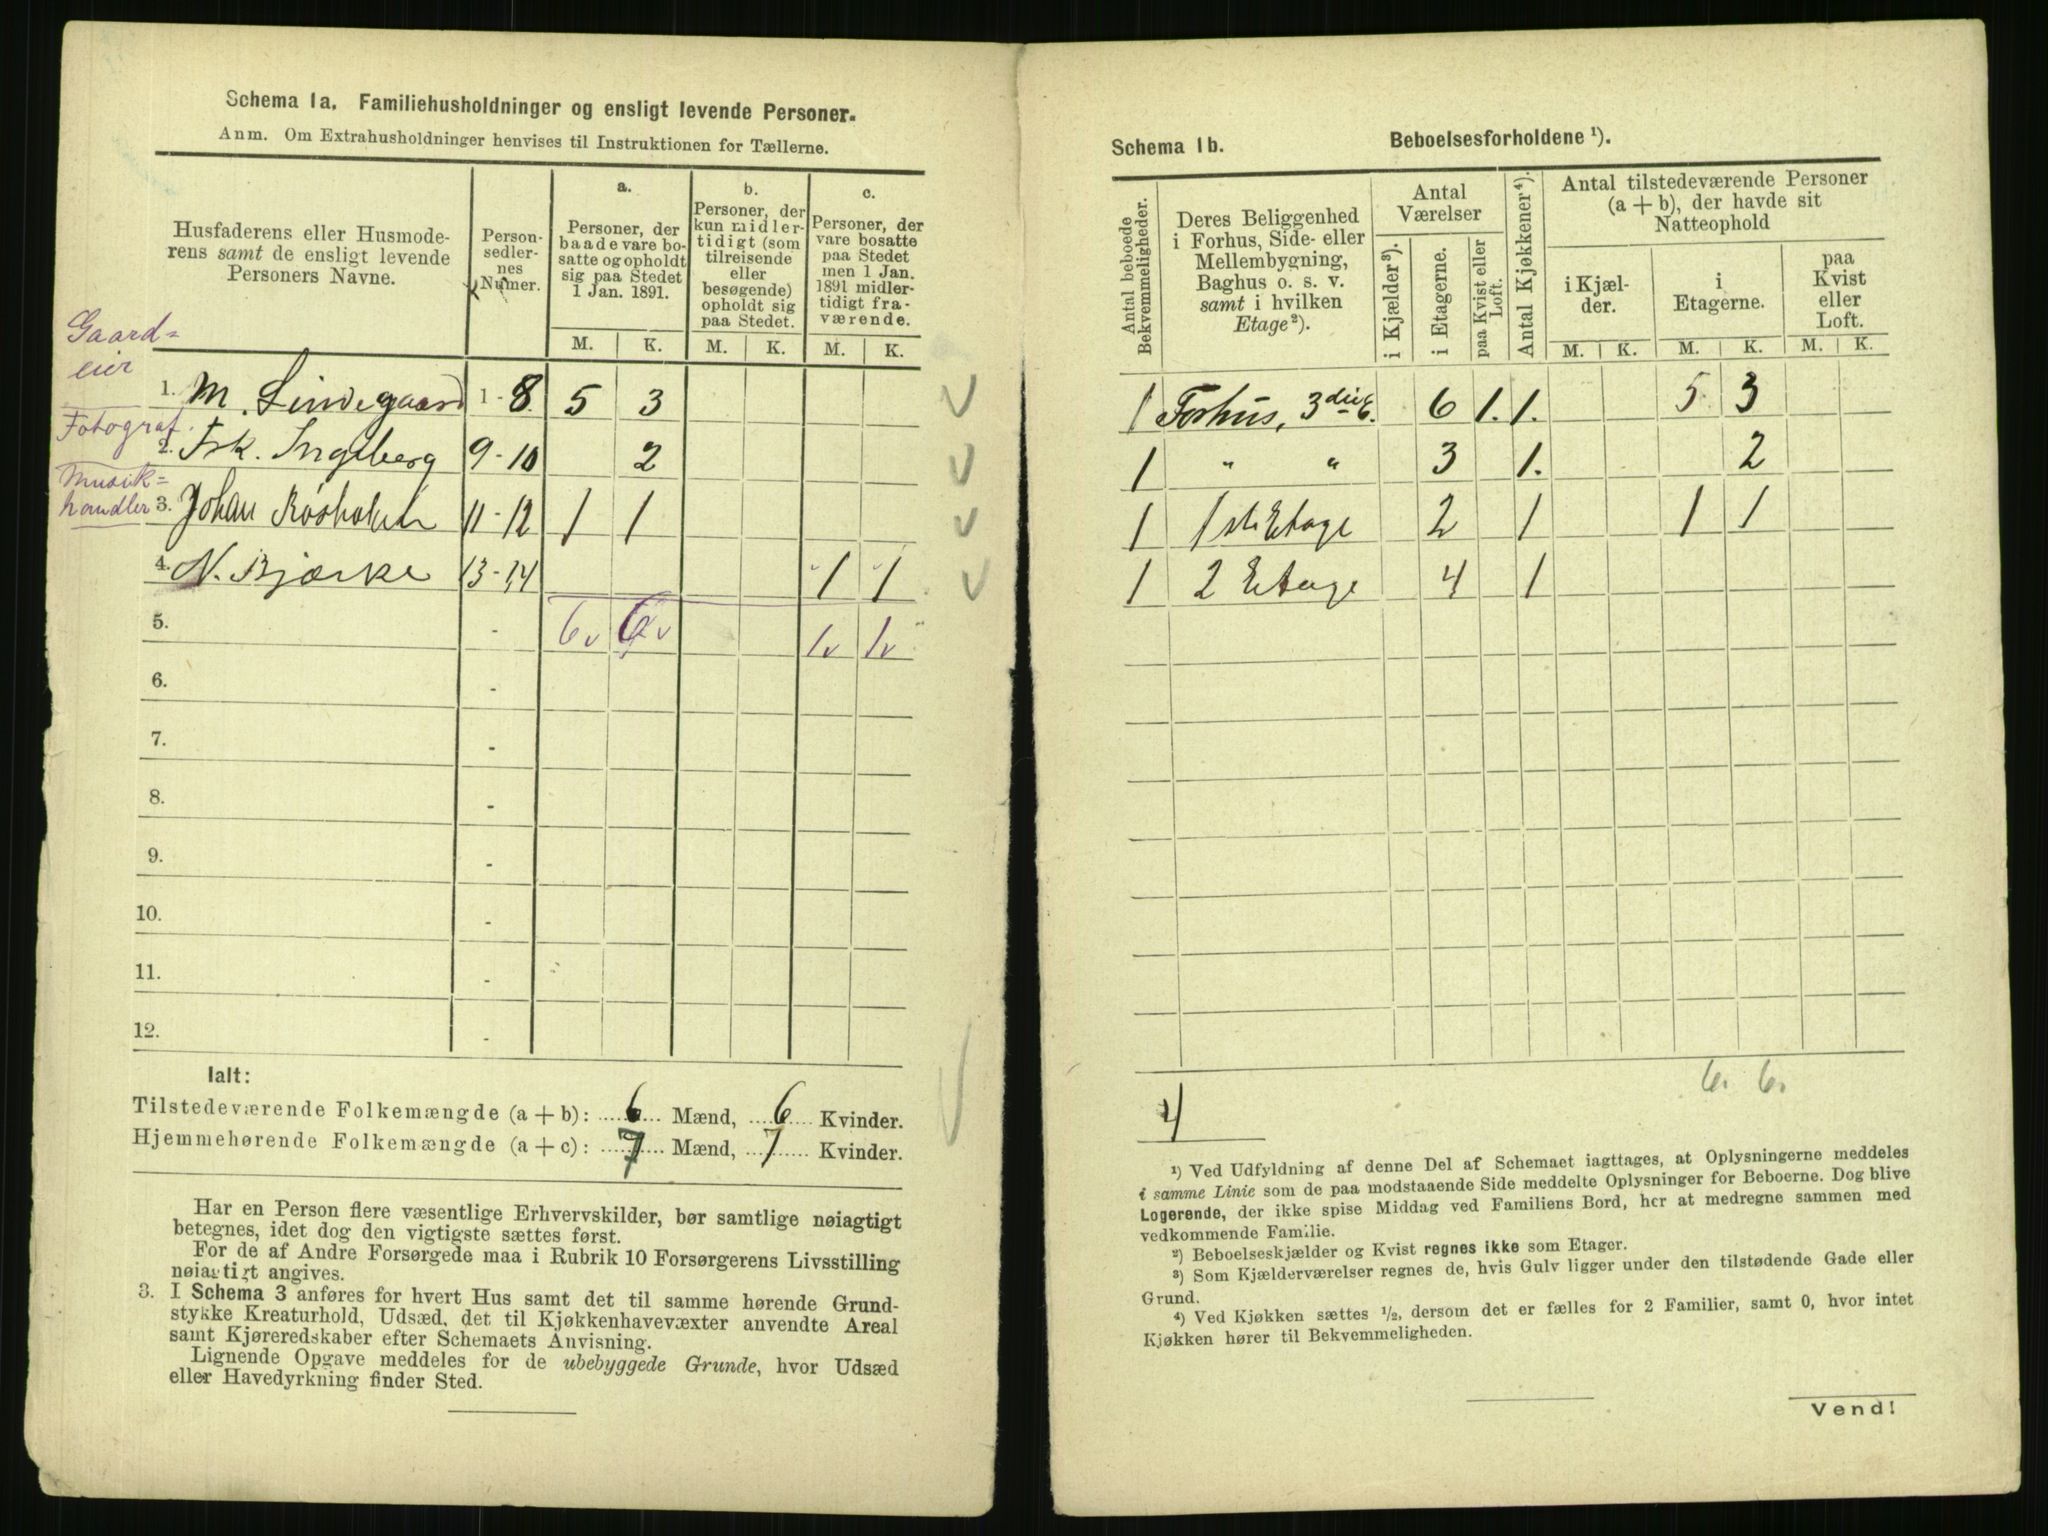 Schema 1a. Familiehusholdninger og ensligt levende Personer.
Anm. Om Extrahusholdninger henvises til Instruktionen for Tællerne.
Husfaderens eller Husmode-
rens samt de ensligt levende
Personers Navne.
Person-
sedler-
nes
Numer.
a.
Personer, der
baade vare bo-
satte og opholdt
sig paa Stedet
1 Jan. 1891.
b.
Personer, der
kun midler-
tidigt (som
tilreisende
eller
besøgende)
opholdt sig
paa Stedet.
c.
Personer, der
vare bosatte
paa Stedet
men 1 Jan.
1891 midler-
tidigt fra-
værende.
M. K. M. K. M. K.
Gaard=
eier
1. M. Lindegaard 1 - 8 5 3
Fotograf.
2. Frk. Ingeberg 9 - 10 2
Musik=
handler
3. Johan 11 - 12 1 1
4. N. Bjærke 13 - 14 1 1
5. - 6v 6v 1v 1v
6. -
7. -
8. -
9. -
10. -
11. -
12. -
Ialt:
Tilstedeværende Folkemængde (a + b): 6 Mænd, 6 Kvinder.
Hjemmehørende Folkemængde (a + c): 7 Mænd, 7 Kvinder.
Har en Person flere væsentlige Erhvervskilder, bør samtlige nøiagtigt
betegnes, idet dog den vigtigste sættes først.
For de af Andre Forsørgede maa i Rubrik 10 Forsørgerens Livsstilling
nøiagtigt angives.
3. I Schema 3 anføres for hvert Hus samt det til samme hørende Grund-
stykke Kreaturhold, Udsæd, det til Kjøkkenhavevæxter anvendte Areal
samt Kjøreredskaber efter Schemaets Anvisning.
Lignende Opgave meddeles for de ubebyggede Grunde, hvor Udsæd
eller Havedyrkning finder Sted.
Schema 1b. Beboelsesforholdene ¹).
Antal beboede
Bekvemmeligheder.
Deres Beliggenhed
i Forhus, Side- eller
Mellembygning,
Baghus o. s. v.
samt i hvilken
Etage²).
Antal
Værelser
i Kjælder³).
i Etagerne.
paa Kvist eller
Loft.
Antal Kjøkkener⁴).
Antal tilstedeværende Personer
(a + b), der havde sit
Natteophold
i Kjæl-
der.
i
Etagerne.
paa
Kvist
eller
Loft.
M. K. M. K. M. K.
1 Forhus, 3die E. 6 1. 1. 5 3
1 " " 3 1. 2
1 1ste Etage 2 1 1 1
1 2 Etage 4 1
6v 6v
4
¹) Ved Udfyldning af denne Del af Schemaet iagttages, at Oplysningerne meddeles
i samme Linie som de paa modstaaende Side meddelte Oplysninger for Beboerne. Dog blive
Logerende, der ikke spise Middag ved Familiens Bord, her at medregne sammen med
vedkommende Familie.
²) Beboelseskjælder og Kvist regnes ikke som Etager.
³) Som Kjælderværelser regnes de, hvis Gulv ligger under den tilstødende Gade eller
Grund.
⁴) Ved Kjøkken sættes ½, dersom det er fælles for 2 Familier, samt 0, hvor intet
Kjøkken hører til Bekvemmeligheden.
Vend!